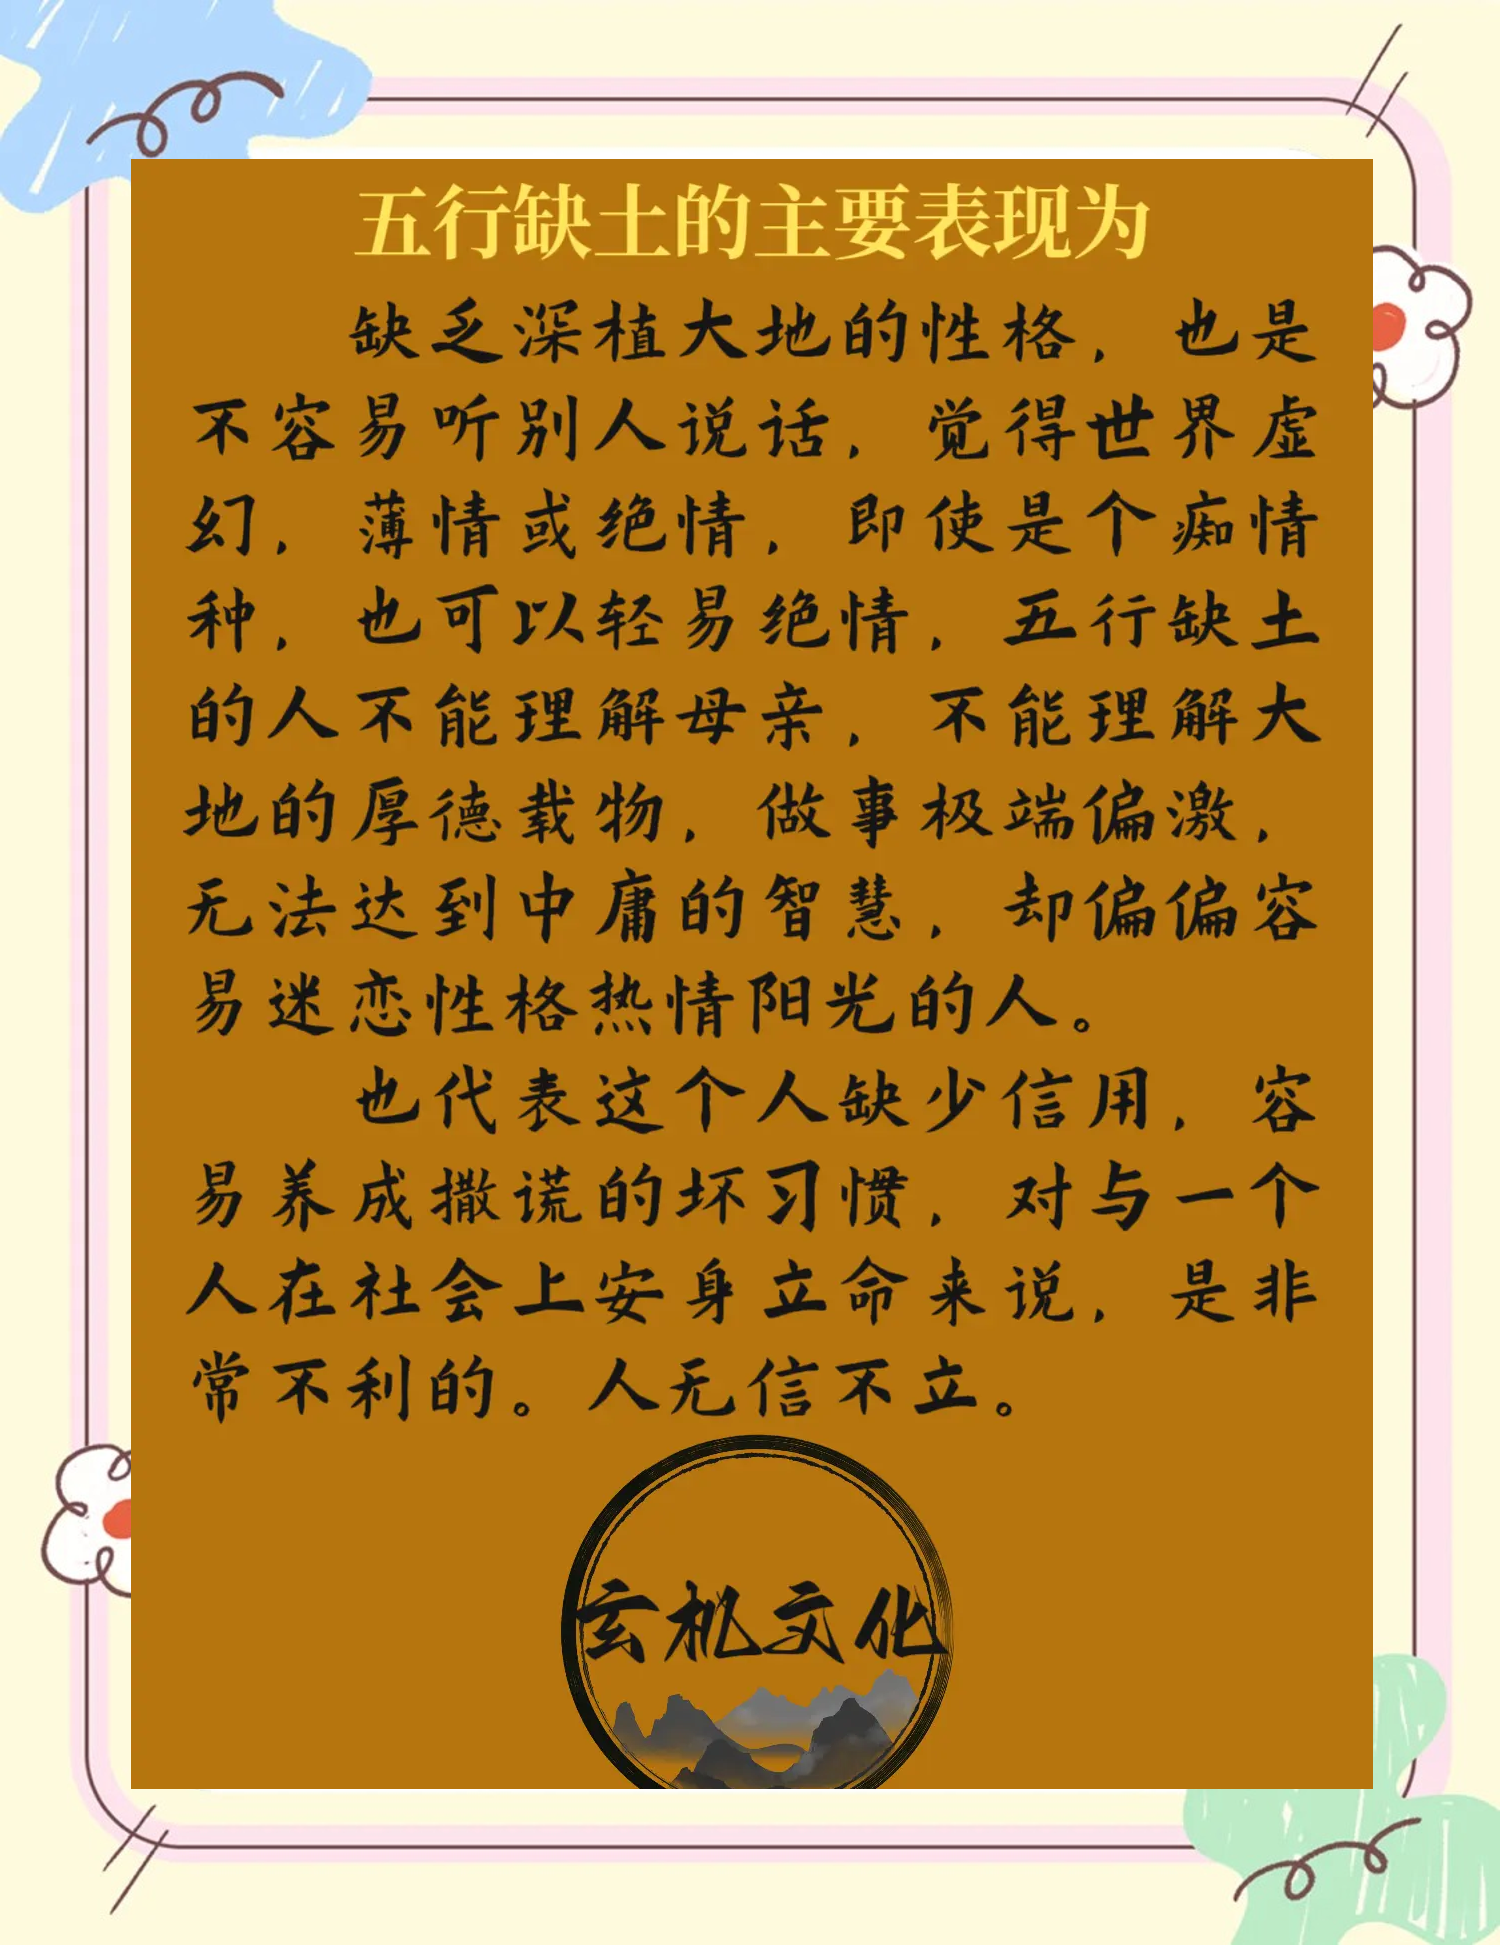 五行缺土的主要表现为
缺乏深植大地的性格，也是
不容易听别人说话，觉得世界虚
幻，薄情或绝情，即使是个痴情
种，也可以轻易绝情，五行缺土
的人不能理解母亲，不能理解大
地的厚德载物，做事极端偏激，
无法达到中庸的智慧，却偏偏容
易迷恋性格热情阳光的人。
也代表这个人缺少信用，容
易养成撒谎的坏习惯，对与一个
人在社会上安身立命来说，是非
常不利的。人无信不立。
玄机文化